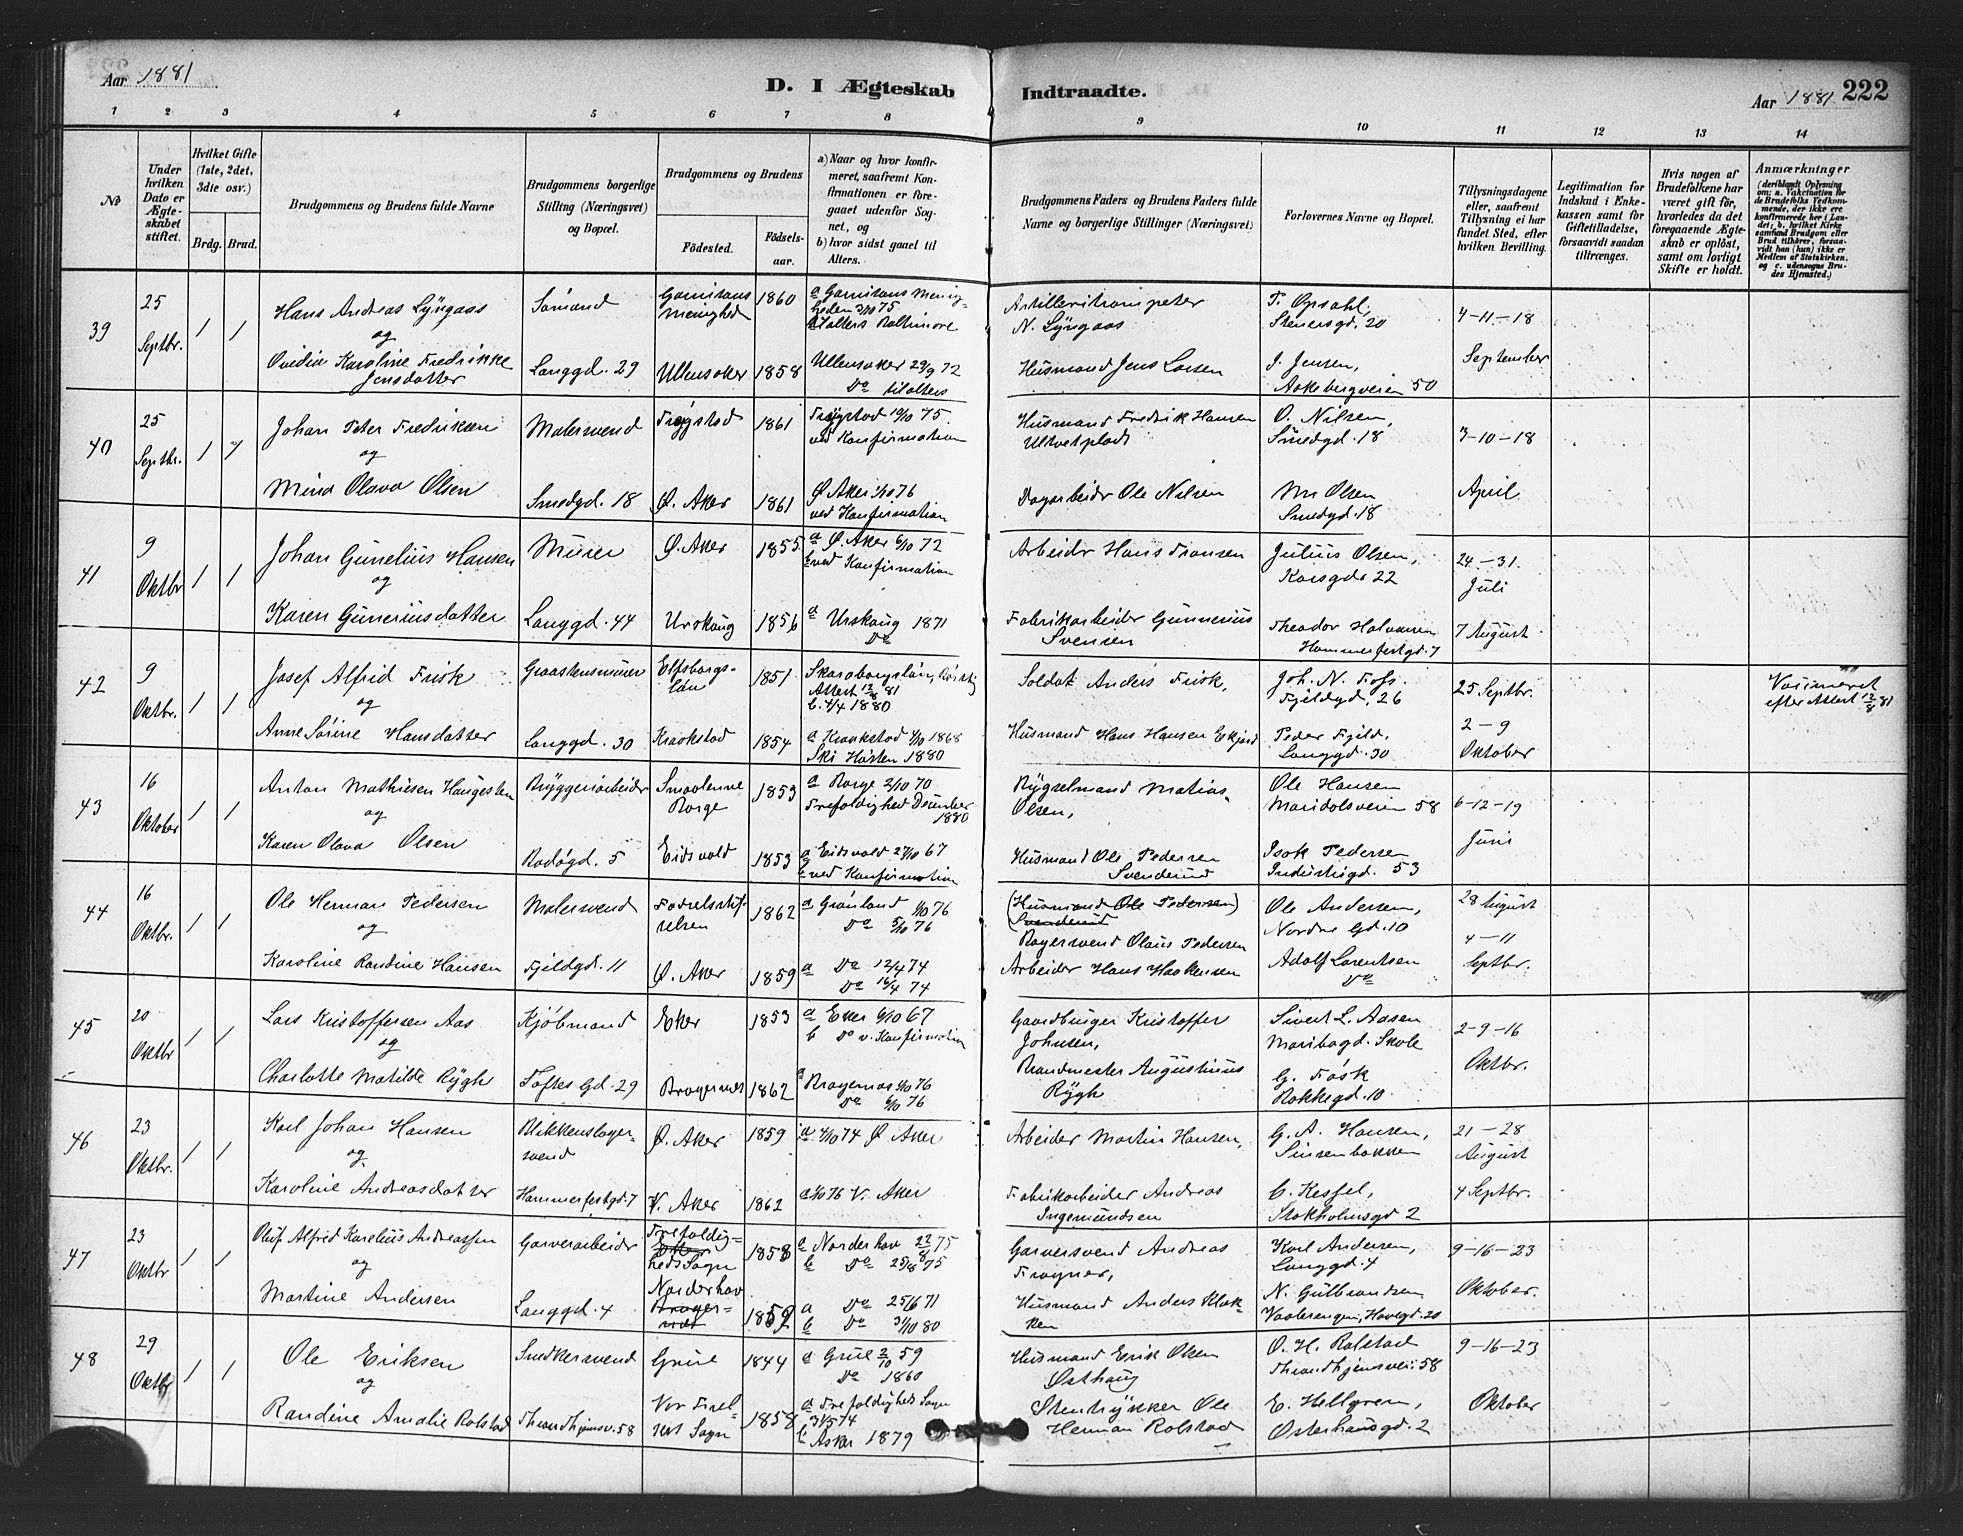 Aar 1881
D. I Ægteskab Indtraadte.
Aar 1881 222
1 2 3 4 5 6 7 8 9 10 11 12 13 14
No
Under hvilken Dato er Ægteskabet stiftet.
Hvilket Gifte (1ste, 2det, 3die osv.)
Brdg. Brud.
Brudgommens og Brudens fulde Navne
Brudgommens borgerlige Stilling (Næringsvei) og Bopæl.
Brudgommens og Brudens
Fødested.
Fødsels-aar.
a) Naar og hvor konfirmeret, saafremt Konfirmationen er foregaaet udenfor Sognet, og
b) hvor sidst gaaet til Alters.
Brudgommens Faders og Brudens Faders fulde Navne og borgerlige Stillinger (Næringsvei)
Forlovernes Navne og Bopæl.
Tillysningsdagene eller, saafremt Tillysning ei har fundet Sted, efter hvilken Bevilling.
Legitimation for Indskud i Enkekassen samt for Giftetilladelse, forsaavidt saadan tiltrænges.
Hvis nogen af Brudefolkene har været gift før, hvorledes da det foregaaende Ægteskab er opløst, samt om lovligt Skifte er holdt.
Anmærkninger
(deriblandt Oplysning om: a. Vakcination for de Brudefolks Vedkommende, der ikke ere konfirmerede her i Landet; b. hvilket Kirkesamfund Brudgom eller Brud tilhører, forsaavidt han (hun) ikke er Medlem af Statskirken. og c. udensogns Brudes Hjemsted.)
39 25 Septbr. 1 1
Hans Andreas Lyngaas
og
Ovidia Karoline Fredrikke Jensdatter
Sømand
Langgd. 29
Garnisons Menighed 1860
Ullensaker 1858
a Garnisons Menigheden 3/10 75
tilalters Baltimore
Ullensaker 29/9 72
Do tilalters
Artilleritrompeter
N. Lyngaas
Husmand Jens Larsen
T. Opsahl,
Stenersgd. 20
J. Jensen,
Aakebergveien 50
4-11-18
September
40 25 Septbr. 1 1
Johan Peter Fredriksen
og
Mina Olava Olsen
Malersvend
Smedgd. 18
Trøgstad 1861
Ø. Aker 1861
Trøgstad 10/10 75.
ved Konfirmation
Ø Aker 1/10 76
ved Konfirmation
Husmand Fredrik Hansen
Dagarbeider Ole Nilsen
O. Nilsen,
Smedgd. 18
Olsen
Smedgd. 18
3-10-18
April
41 9 Oktbr 1 1
Johan Gunelius Hansen
og
Karen Gunneriusdatter
Murer
Langgd. 44
Ø. Aker 1855.
Urskoug 1856
a Ø Aker 6/10 72
b ved Konfirmation
a Urskoug 1871
Do
Arbeider Hans Fransen
Fabrikarbeider Gunnerius Svensen
Julius Olsen,
Korsgd. 22
Theodor Halvorsen
Hammerfestgd. 7
24-31.
Juli
7 August
42 9 Oktbr. 1 1
Josef Alfrid Frisk
og
Anne Sørine Hansdatter
Graastensmurer
Langgd. 30
Elfsborgslän 1851
Kraakstad 1854
Skaraborgslän,
Attest 12/8 81
b. 4/4 1880
a Kraakstad 4/10 1868
Ski Høsten 1880
Soldat Anders Frisk,
Husmand Hans Hansen
Joh. N. Foss.
Fjeldgd. 26
Peder Fjeld,
Langgd. 30
25 Septbr.
2-9
Oktober
Vaccineret
efter Attest 12/8 81
43 16 Oktober 1 1
Anton Mathiesen
og
Karen Olava Olsen
Bryggeriarbeider
Rodøgd. 5
Smaalenene Borge 1853
Eidsvold 1853
a Borge 2/10 70
Trefoldighed December 1880
a Eidsvold 27/10 67
b ved Konfirmation
Rygselmand Matias Olsen,
Husmand Ole Pedersen
Ole Hansen
Maridalsveien 58
Isak Pedersen
Industrigd. 53
6-12-19
Juni
44 16 Oktbr. 1 1
Ole Herman Pedersen
og
Karoline Randine Hansen
Malersvend
Fjeldgd. 11
Fødselsstiftelsen 1862
Ø. Aker 1859
a Grønland 1/10 76
Do 5/10 76
a Do 12/4 74
Do 16/4 74
(Husmand Ole Pedersen)
Bagersvend Olaus Pedersen
Arbeider Hans Haakensen
Ole Andersen,
Nordre Gd. 10
Adolf Lorentsen
Do
28 August
4-11
Septbr.
45 20 Oktbr 1 1
Lars Kristoffersen Aas
og
Charlotte Matilde Rygh
Kjøbmand
Toftes Gd. 29
Eker 1853
Bragernes 1862
a Eker 6/10 67
b Do v. Konfirmation
a Bragernes 1/10 76
Do 6/10 76
Gaardbruger Kristoffer Johnsen,
Brandmester Augustinius Rygh
Sivert L. Aasen
Maribogd. Skole
G. Fosk
Rokkegd. 10
2-9-16
Oktbr.
46 23 Oktbr. 1 1
Karl Johan Hansen
og
Karoline Andreasdatter
Blikkenslagersvend
Hammerfestgd. 7
Ø. Aker 1859
V. Aker 1862
a 4/10 74 Ø Aker
a 1/10 76 V. Aker
Arbeider Martin Hansen,
Fabrikarbeider Andreas Ingemundsen
G. A. Hansen,
Sinsenbakken
C. Kessel,
Stokholmsgd 2
21-28
August
4 Septbr.
47 23 Oktbr 1 1
Oluf Alfred Karelius Andreassen
og
Martine Andersen
Garverarbeider
Langgd. 4
Trefoldigheds Sogn 1858
Norderhov 1859
a Norderhov 22/8 75
b Do 25/8 75
a Do 25/6 71
b Do 31/10 80
Garversvend Andreas Frogner,
Husmand Anders Klokken
Karl Andersen,
Langgd. 4
N. Gulbrandsen
Vaalerengen, Havegd. 20
9-16-23
Oktober.
48 29 Oktbr 1 1
Ole Eriksen
og
Randine Amalie Rolstad
Snedkersvend
Throndhjemsv. 58
Grue 1844
Vor Frelsers Sogn 1858
a Grue 2/10 59
Do 1860
a Trefoldigheds Sogn
31/5 74
b Asker 1879
Husmand Erik Olsen Østhaug
Stentrykker Ole Herman Rolstad
O. H. Rolstad
Throndhjemsvei. 58
E. Hellgren,
Osterhausgd. 2
9-16-23
Oktober